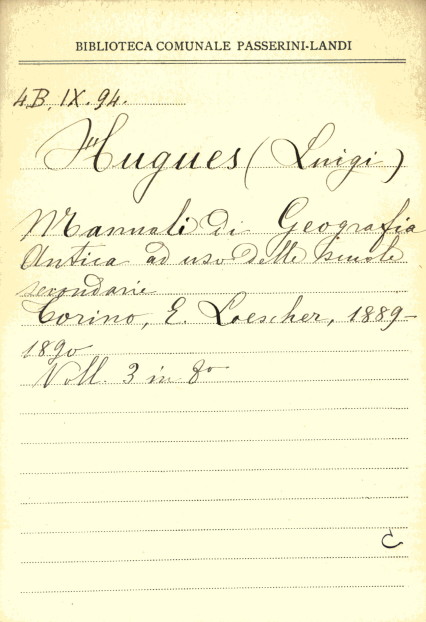 BIBLIOTECA COMUNALE PASSERINI-LANDI
4B. IX. 94.
Hugues (Luigi)
Manuali di Geografia
Antica ad uso delle scuole
secondarie
Torino, E. Loescher, 1889-
1890
Voll. 3 in 8°
C